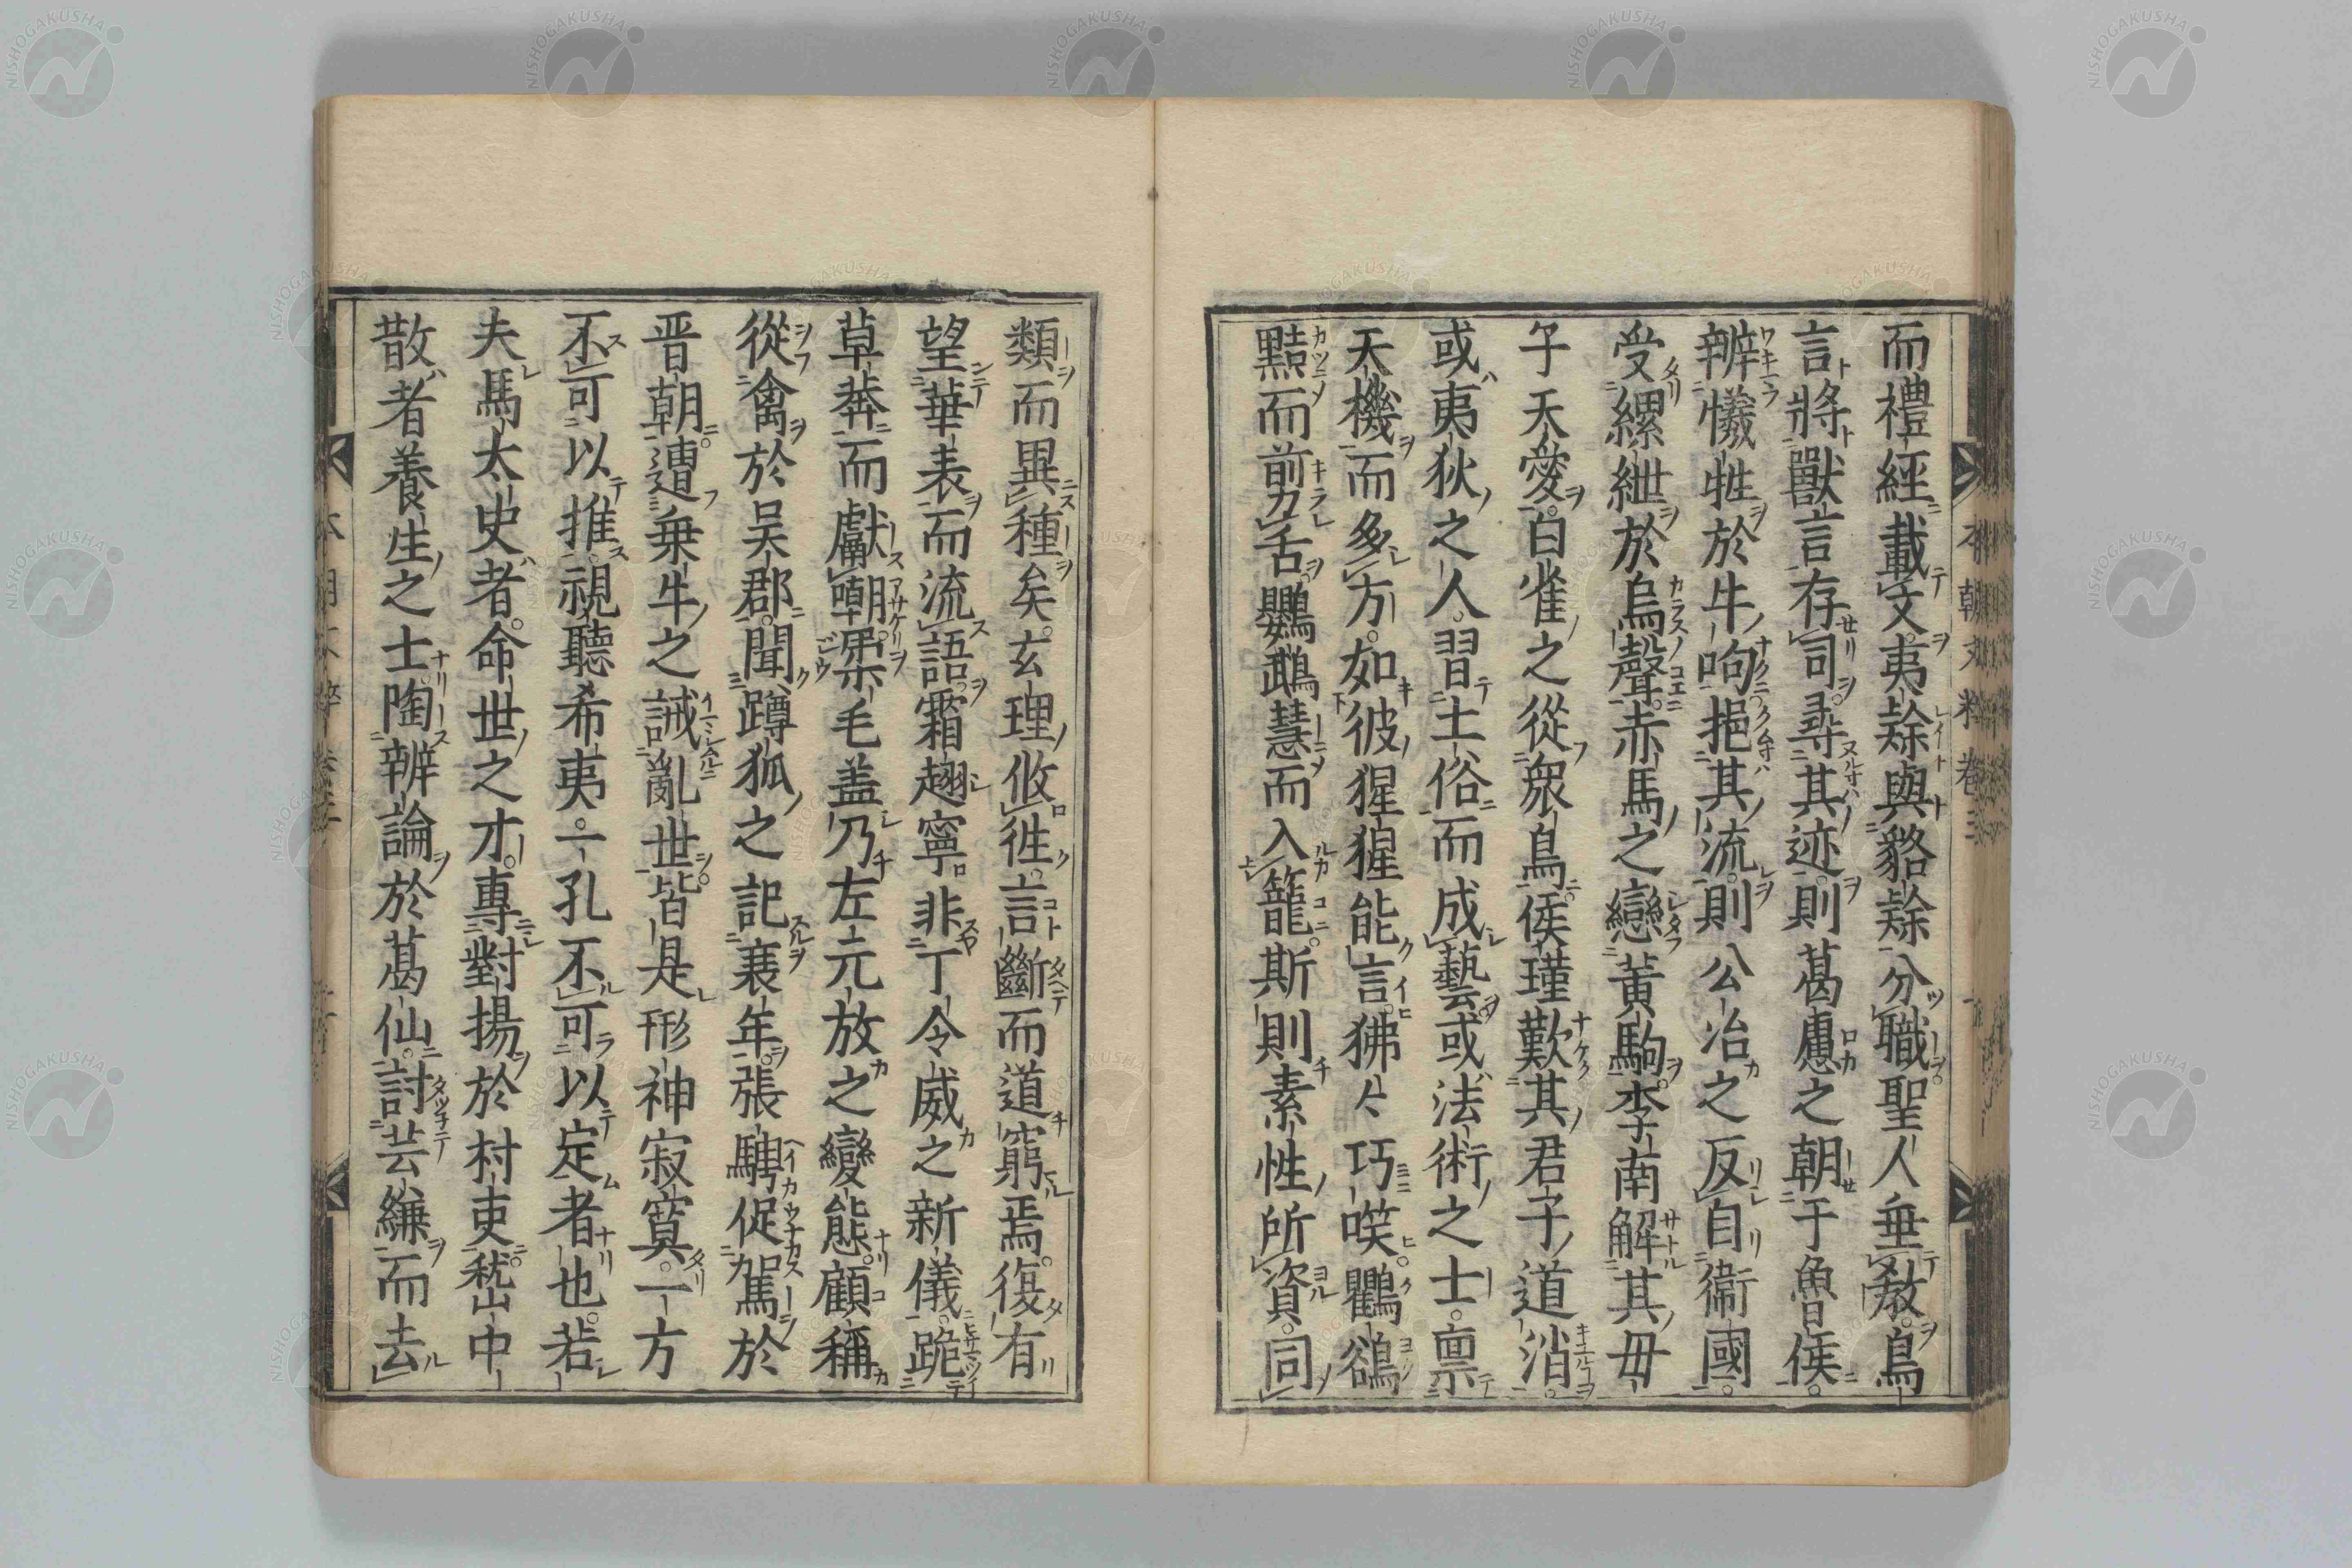 而禮經載文。夷隸與貉隸分職。聖人垂教。鳥
言將獸言存司。尋其迹則葛盧之朝于魯侯。
辨犧牲於牛呴。挹其流則公冶之反自衞國。
受縲紲於烏聲。赤馬之戀黃駒。李南解其毋
子天愛。白雀之從衆鳥。侯瑾歎其君子道消。
或夷狄之人。習土俗而成藝。或法術之士。禀
天機而多方。如彼猩猩能言。狒々巧咲。鸜鵒
黠而剪舌。鸚鵡慧而入籠。斯則素性所資。同
類而異種矣。玄理攸徃。言斷而道窮焉。復有
望華表而流語。霜翅寧非丁令威之新儀。跪
草莽而獻嘲。槊毛盖乃左元放之變態。顧稱
從禽於吴郡。聞蹲狐之記衰年。張騁促駕於
晋朝。遭乗牛之誡亂世。皆是形神寂寞。一方
不可以推。視聽希夷。一孔不可以定者也。若
夫馬太史者。命世之才。專對揚於村吏。嵇中
散者養生之士。陶辨論於葛仙。討芸縑而去